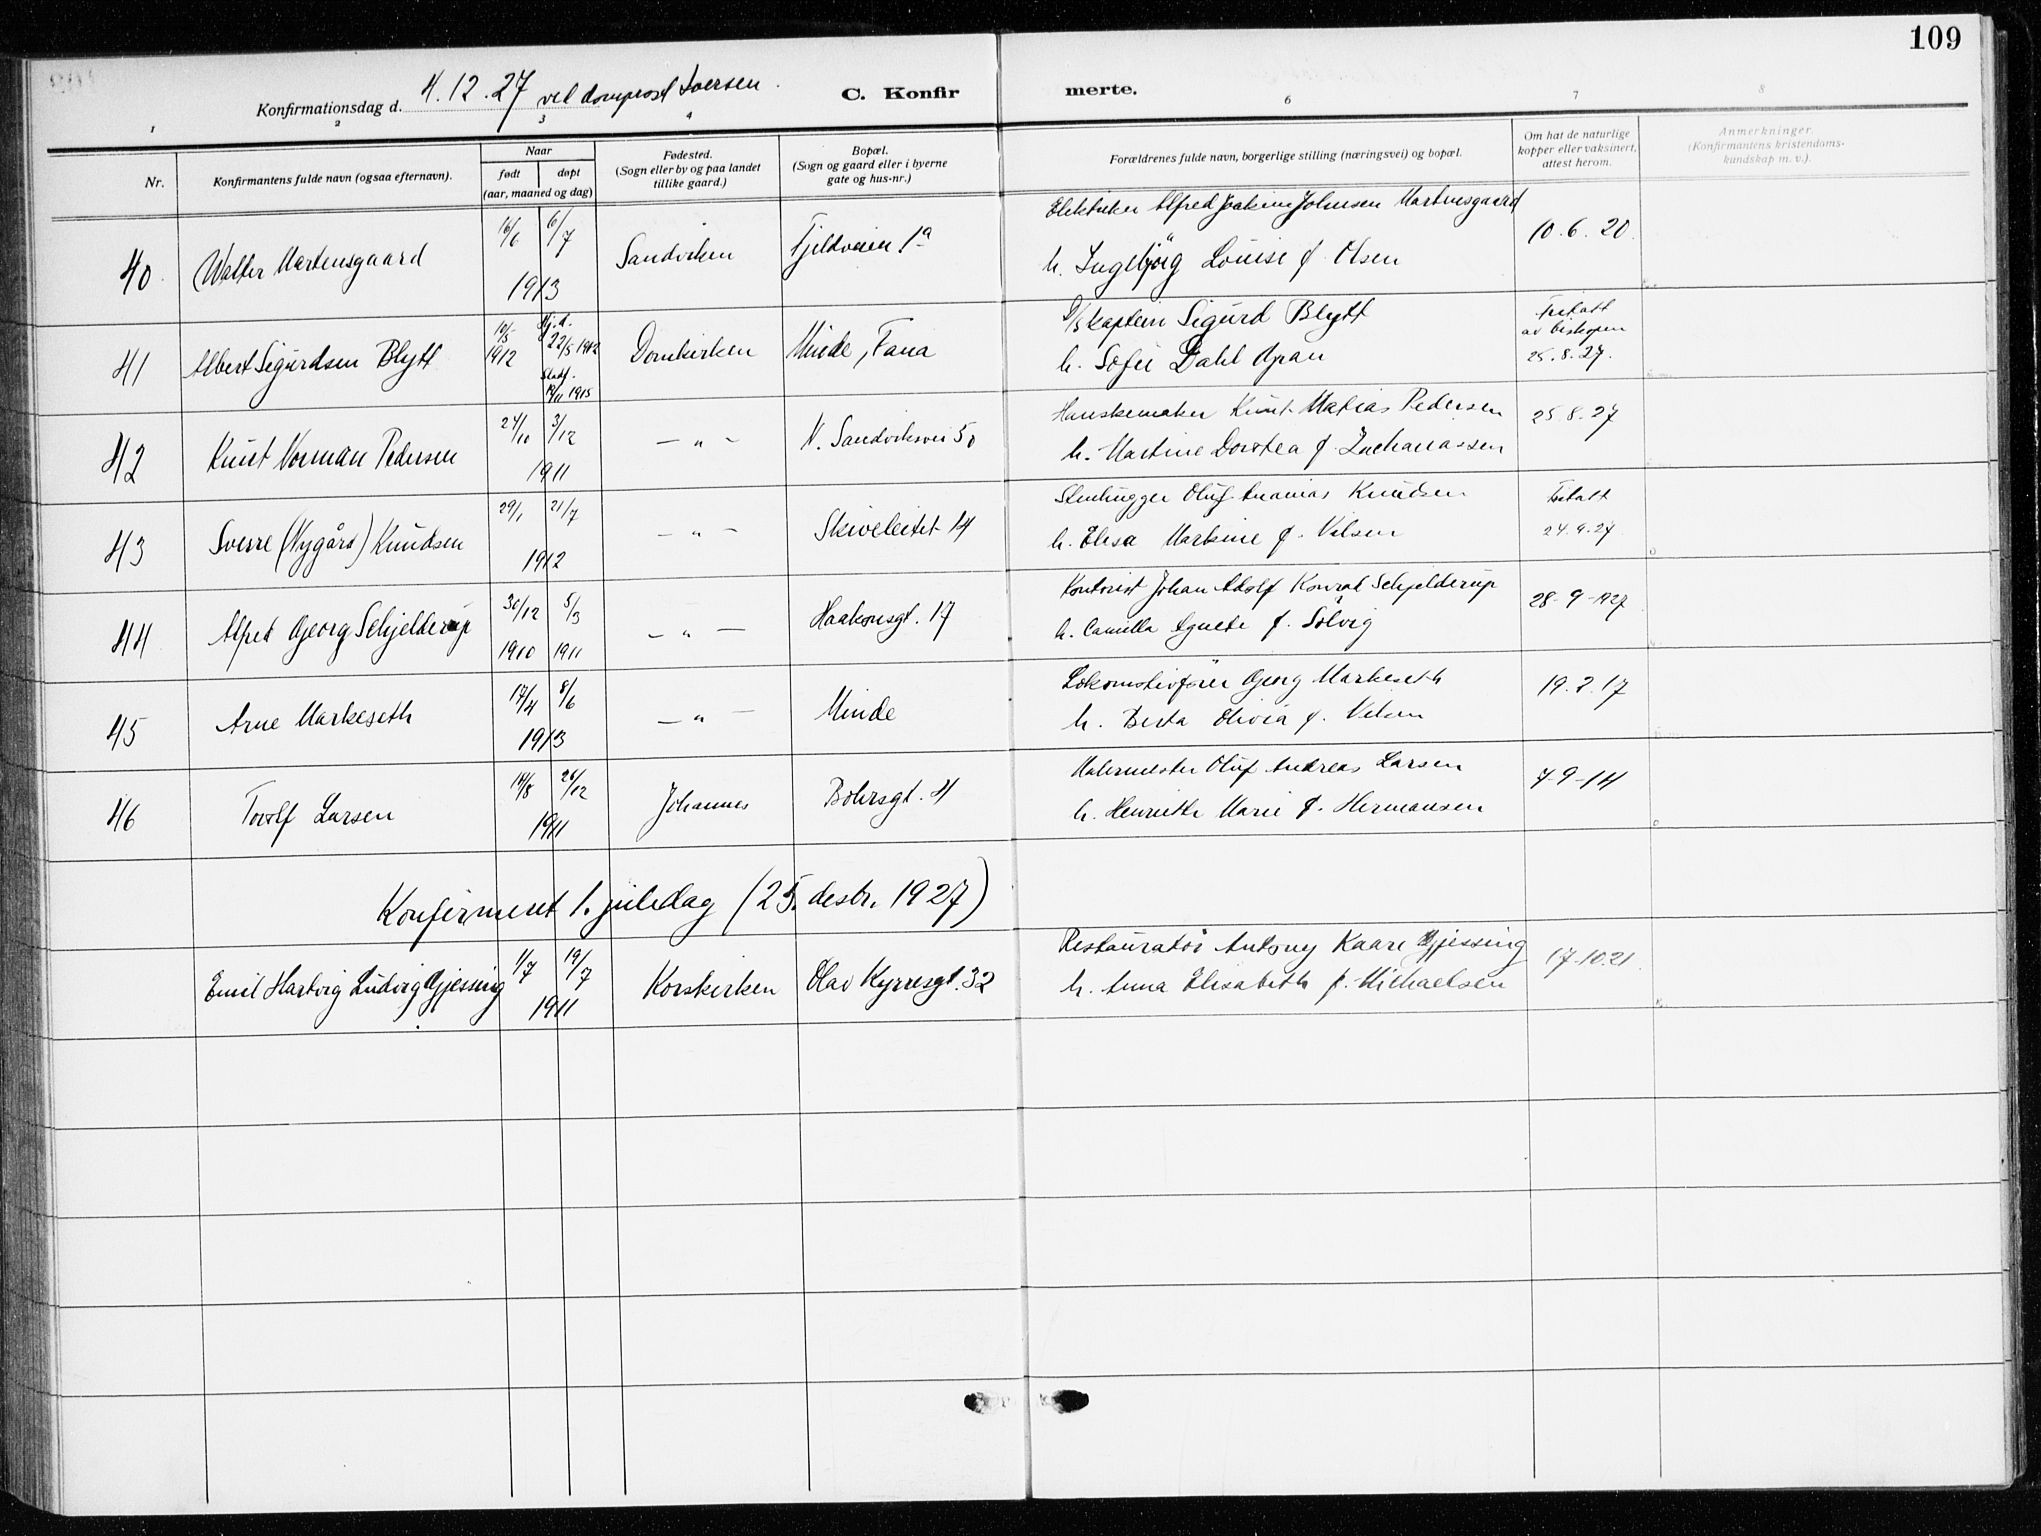 109
Konfirmationsdag d. 4.12.27 ved domprost Iversen.
C. Konfirmerte.
1 2 3 4 6 7 8
Nr.
Konfirmantens fulde navn (ogsaa efternavn).
Naar
født døpt
(aar, maaned og dag)
Fødested.
(Sogn eller by og paa landet
tillike gaard.)
Bopæl.
(Sogn og gaard eller i byerne
gate og hus-nr.)
Forældrenes fulde navn, borgerlige stilling (næringsvei) og bopæl.
Om hat de naturlige
kopper eller vaksinert,
attest herom.
Anmerkninger.
(Konfirmantens kristendoms-
kundskap m. v.).
40 Walter Martensgaard 16/6 6/7 1913 Sandviken Fjeldveien 1a
Elektriker Alfred Joakim Johnsen Martensgaard
h. Ingebjörg Louise f. Olsen
10.6.20.
41 Albert Sigurdsen Blytt 10/5 1912 Hj.d. 22/5 1912 Stadf. 19/11 1915 Domkirken Minde, Fana
S/S kaptein Sigurd Blytt
h. Sofie Dahl Opan
Fritatt
av biskopen
25.8.27.
42 Knut Norman Pedersen 24/10 3/12 1911 — " — N. Sandviksvei 50
Hanskemaker Knut Matias Pedersen
h. Martine Dorotea f. Zachariassen
25.8.27
43 Sverre (Nygård) Knudsen 29/1 21/7 1912 — " — Skiveleitet 14
Stenhugger Oluf Ananias Knudsen
h. Elisa Markine f. Nilsen
Fritatt
24.9.27
44 Alfred Georg Schjelderup 30/12 1910 5/3 1911 — " — Haakonsgt. 17
Kontorist Johan Adolf Konrad Schjelderup
h. Camilla Agnete f. Solvig
28-9-1927
45 Arne Markeseth 17/4 8/6 1913 — " — Minde
Lokomotivförer Georg Markeseth
h. Berta Olivia f. Nilsen
19.2.17
46 Torolf Larsen 14/8 26/12 1911 Johannes Bohrsgt. 4
Malermester Oluf Andreas Larsen
h. Henriette Marie f. Hermansen
7-9-14
Konfirmert 1. juledag (25. desbr. 1927)
Emil Hartvig Ludvig Gjessing 1/7 19/7 1911 Korskirken Olav Kyrresgt. 32
Restauratör Antony Kaare Gjessing
h. Anna Elisabeth f. Michaelsen
17.10.21.